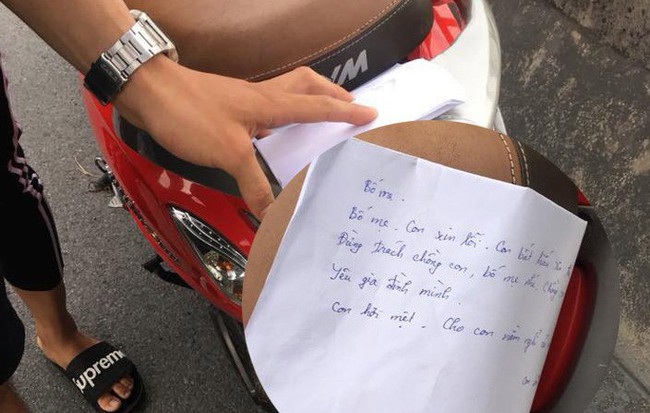 Bố mẹ.
Bố mẹ. Con xin lỗi. Con bất hiếu
Đừng trách chồng con, bố mẹ nhé,
Yêu gia đình mình.
Con hơi mệt. Cho con nằm nghỉ
Supreme